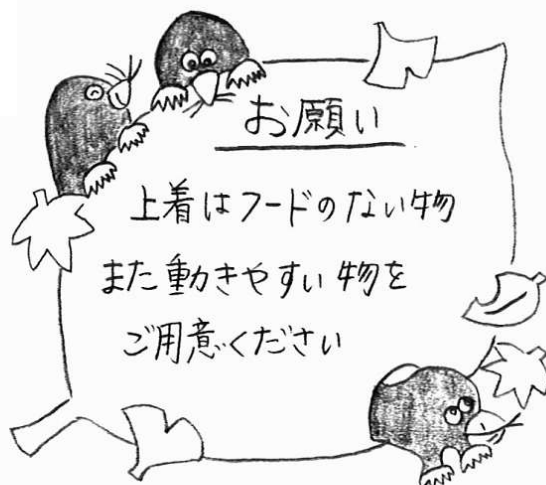 お願い
上着はフードのない物
また動きやすい物を
ご用意ください